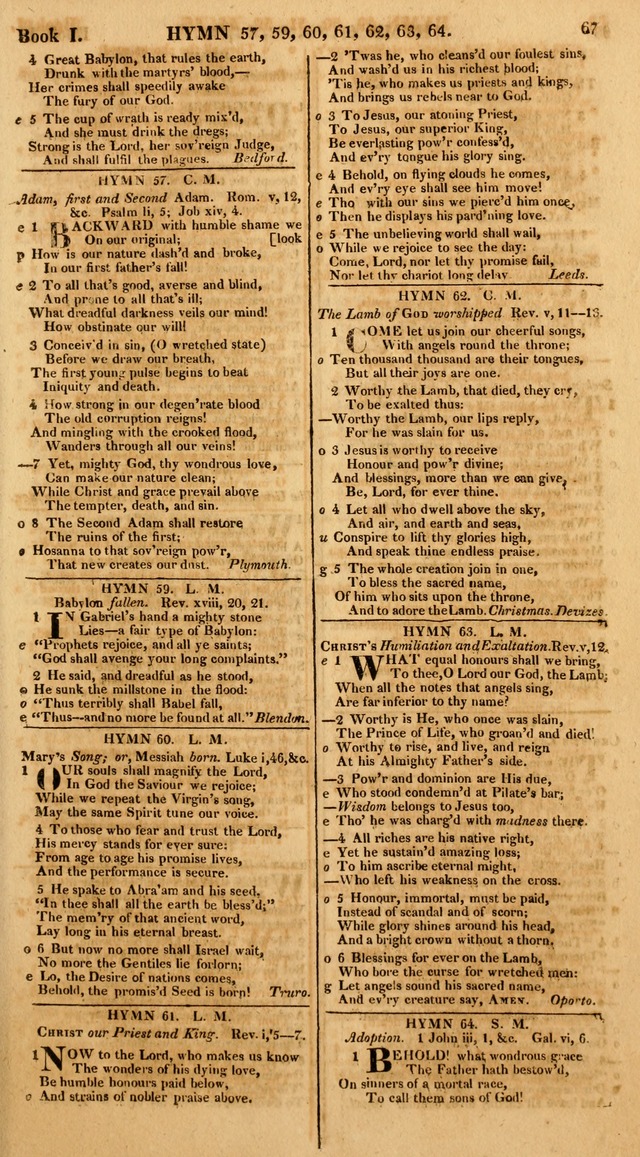 Book I. HYMN 57, 59, 60, 61, 62, 63, 64. 67
4 Great Babylon, that rules the earth,
Drunk with the martyrs' blood,—
Her crimes shall speedily awake
The fury of our God.
e 5 The cup of wrath is ready mix'd,
And she must drink the dregs;
Strong is the Lord, her sov'reign Judge,
And shall fulfil the plagues. Bedford.
HYMN 57. C. M.
Adam, first and Second Adam. Rom. v, 12,
&c. Psalm li, 5; Job xiv, 4.
e 1 BACKWARD with humble shame we
On our original; [look
p How is our nature dash'd and broke,
In our first father's fall!
e 2 To all that's good, averse and blind,
And prone to all that's ill;
What dreadful darkness veils our mind!
How obstinate our will!
3 Conceiv'd in sin, (O wretched state)
Before we draw our breath,
The first young pulse begins to beat
Iniquity and death.
4 How strong in our degen'rate blood
The old corruption reigns!
And mingling with the crooked flood,
Wanders through all our veins!
—7 Yet, mighty God, thy wondrous love,
Can make our nature clean;
While Christ and grace prevail above
The tempter, death, and sin.
o 8 The Second Adam shall restore
The ruins of the first;
o Hosanna to that sov'reign pow'r,
That new creates our dust. Plymouth.
HYMN 59. L. M.
Babylon fallen. Rev. xviii, 20, 21.
1 IN Gabriel's hand a mighty stone
Lies—a fair type of Babylon:
e "Prophets rejoice, and all ye saints;
"God shall avenge your long complaints."
2 He said, and dreadful as he stood,
e He sunk the millstone in the flood:
o "Thus terribly shall Babel fall,
e "Thus—and no more be found at all." Blendon.
HYMN 60. L. M.
Mary's Song; or, Messiah born. Luke i,46,&c.
1 OUR souls shall magnify the Lord,
In God the Saviour we rejoice;
While we repeat the Virgin's song,
May the same Spirit tune our voice.
4 To those who fear and trust the Lord,
His mercy stands for ever sure:
From age to age his promise lives,
And the performance is secure.
5 He spake to Abra'am and his seed,
"In thee shall all the earth be bless'd;"
The mem'ry of that ancient word,
Lay long in his eternal breast.
o 6 But now no more shall Israel wait,
No more the Gentiles lie forlorn;
e Lo, the Desire of nations comes,
Behold, the promis'd Seed is born! Truro.
HYMN 61. L. M.
CHRIST our Priest and King. Rev. i, 5—7.
1 NOW to the Lord, who makes us know
The wonders of his dying love,
Be humble honours paid below,
o And strains of nobler praise above.
—2 'Twas he, who cleans'd our foulest sins,
And wash'd us in his richest blood;
'Tis he, who makes us priests and kings,
And brings us rebels near to God.
o 3 To Jesus, our atoning Priest,
To Jesus, our superior King,
Be everlasting pow'r confess'd,
And ev'ry tongue his glory sing.
e 4 Behold, on flying clouds he comes,
And ev'ry eye shall see him move!
e Tho' with our sins we pierc'd him once,
o Then he displays his pard'ning love.
e 5 The unbelieving world shall wail,
o While we rejoice to see the day:
Come, Lord, nor let thy promise fail,
Nor let thy chariot long delay. Leeds.
HYMN 62. C. M.
The Lamb of GOD worshipped Rev. v, 11—13.
1 COME let us join our cheerful songs,
With angels round the throne;
o Ten thousand thousand are their tongues,
But all their joys are one.
2 Worthy the Lamb, that died, they cry,
To be exalted thus:
—Worthy the Lamb, our lips reply,
For he was slain for us.
o 3 Jesus is worthy to receive
Honour and pow'r divine;
And blessings, more than we can give,
Be, Lord, for ever thine.
o 4 Let all who dwell above the sky,
And air, and earth and seas,
u Conspire to lift thy glories high,
And speak thine endless praise.
g 5 The whole creation join in one,
To bless the sacred name,
Of him who sits upon the throne,
And to adore the Lamb. Christmas. Devizes.
HYMN 63. L. M.
CHRIST'S Humiliation and Exaltation. Rev.v,12.
e 1 WHAT equal honours shall we bring,
To thee, O Lord our God, the Lamb;
When all the notes that angels sing,
Are far inferior to thy name?
—2 Worthy is He, who once was slain,
The Prince of Life, who groan'd and died!
o Worthy to rise, and live, and reign
At his Almighty Father's side.
—3 Pow'r and dominion are His due,
e Who stood condemn'd at Pilate's bar;
—Wisdom belongs to Jesus too,
e Tho' he was charg'd with madness there.
—4 All riches are his native right,
e Yet he sustain'd amazing loss;
o To him ascribe eternal might,
—Who left his weakness on the cross.
o 5 Honour, immortal, must be paid,
Instead of scandal and of scorn;
While glory shines around his head,
And a bright crown without a thorn.
o 6 Blessings for ever on the Lamb,
Who bore the curse for wretched men:
g Let angels sound his sacred name,
And ev'ry creature say, AMEN. Oporto.
HYMN 64. S. M.
Adoption. 1 John iii, 1, &c. Gal. vi, 6.
1 BEHOLD! what wondrous grace
The Father hath bestow'd,
On sinners of a mortal race,
To call them sons of God!